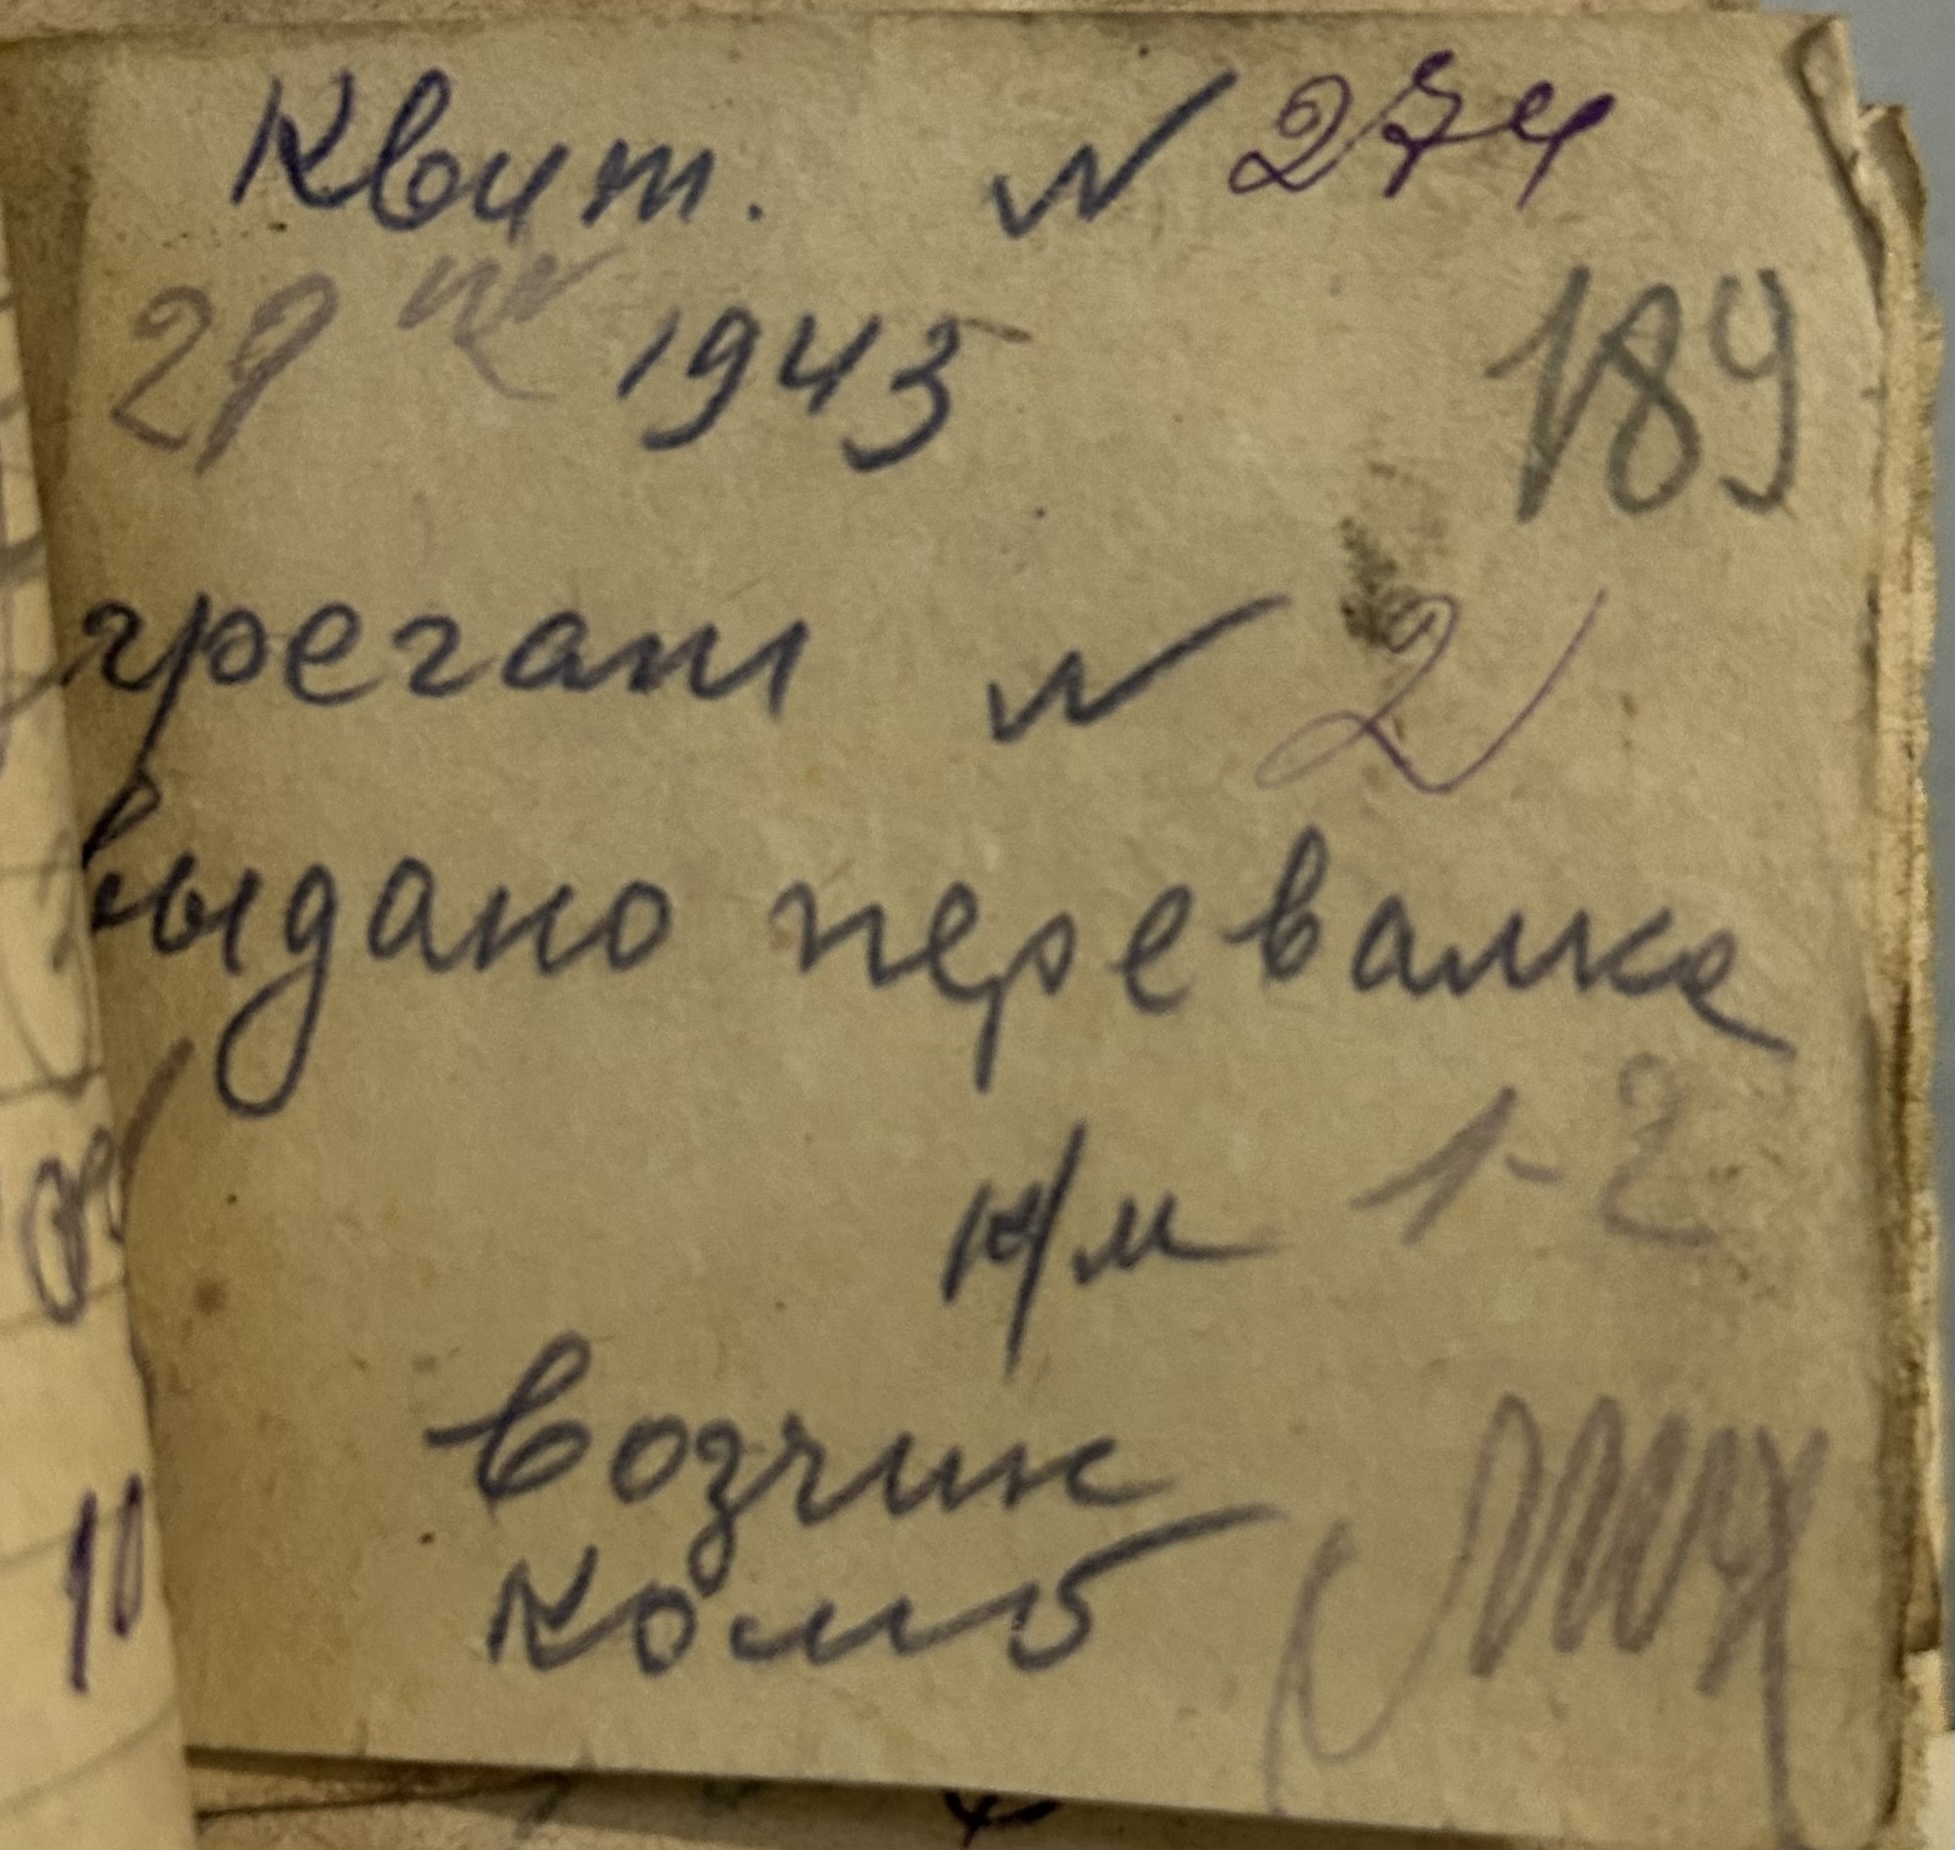 Квит. № 274
29 IX 1943
189
грегат № 2
выдано перевалке
к/м 1-2
возчик
комб
10